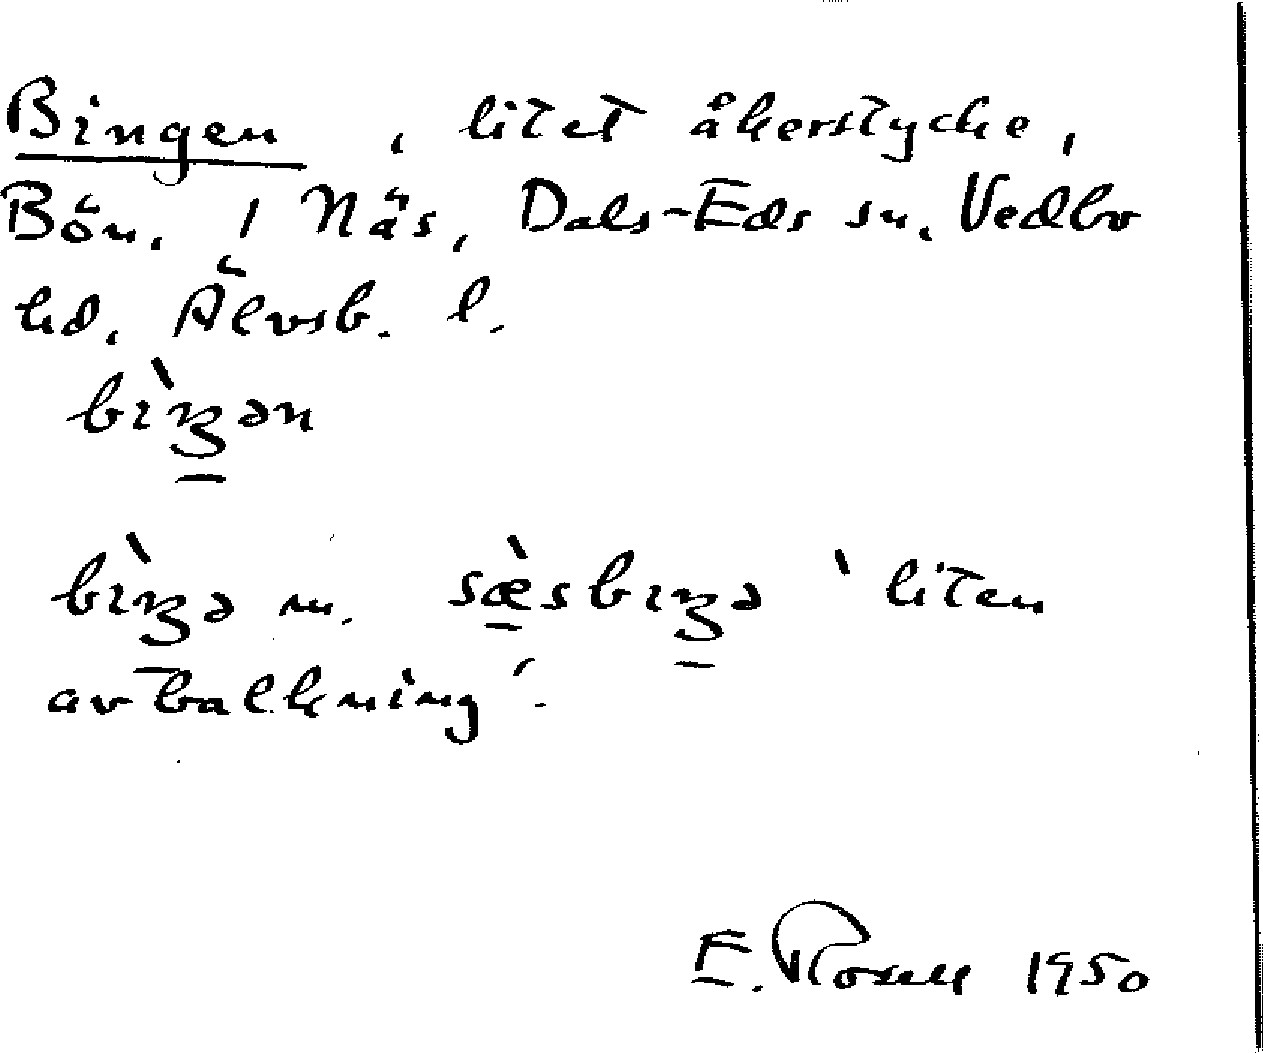 Bingen, litet åkerstycke,
Bön. 1 Näs, Dals-Eds sn. Vedbo
hd. Älvsb. l.
bɪ̀ŋən
bɪ̀ŋə m. sæ̀sbɪŋə ‵liten
avbalkning′.
E. Rosell 1950